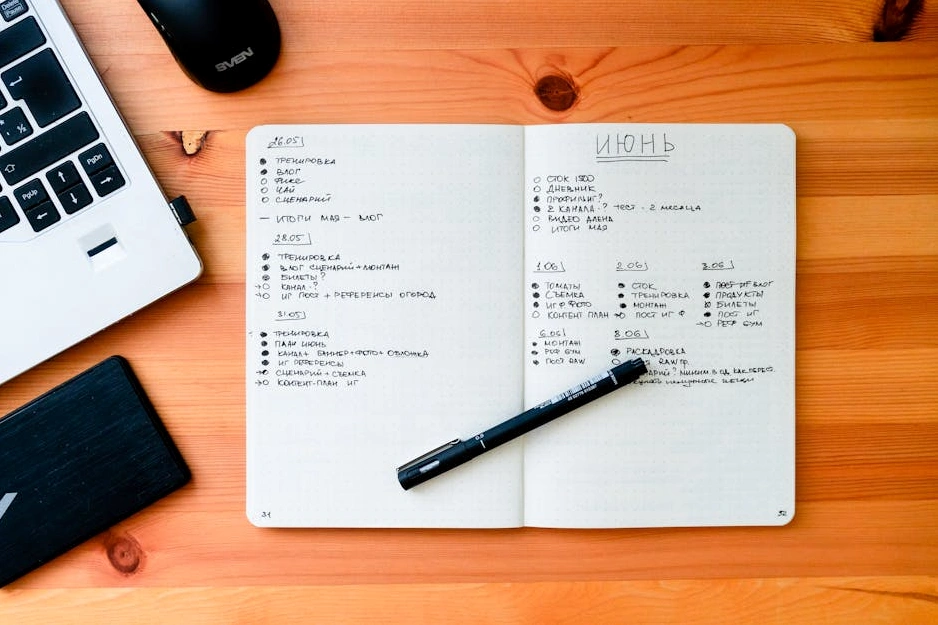 Delete
Pause
SVEN
PgUp
PgDn
26.05
ТРЕНИРОВКА
ВЛОГ
ФИКС
ЧАЙ
СЦЕНАРИЙ
— ИТОГИ МАЯ — ВЛОГ
28.05
ТРЕНИРОВКА
ВЛОГ СЦЕНАРИЙ + МОНТАЖ
БИЛЕТЫ?
КАНАЛ - ?
ИГ ПОСТ + РЕФЕРЕНСЫ ОГОРОД
31.05
ТРЕНИРОВКА
ПЛАН ИЮНЬ
КАНАЛ + БАННЕР + ФОТО + ОБЛОЖКА
ИГ РЕФЕРЕНСЫ
СЦЕНАРИЙ + СЪЕМКА
КОНТЕНТ-ПЛАН ИГ
31
ИЮНЬ
СТОК 1500
ДНЕВНИК
ПРОФИЛИНГ?
2 КАНАЛА - ? → ТЕСТ - 2 МЕСЯЦА
ВИДЕО АЛЕНА
ИТОГИ МАЯ
1.06
ТОМАТЫ
СЪЕМКА
ИГ Ф ФОТО
КОНТЕНТ ПЛАН
2.06
СТОК
ТРЕНИРОВКА
МОНТАЖ
ПОСТ ИГ Ф
3.06
ПОСТ ИГ ВЛОГ
ПРОДУКТЫ
БИЛЕТЫ
ПОСТ ИГ
РЕФ БУМ
6.06
МОНТАЖ
РЕФ БУМ
ПОСТ RAW
8.06
РАСКАДРОВКА
ПОСТ RAW Ф.
0.5
52